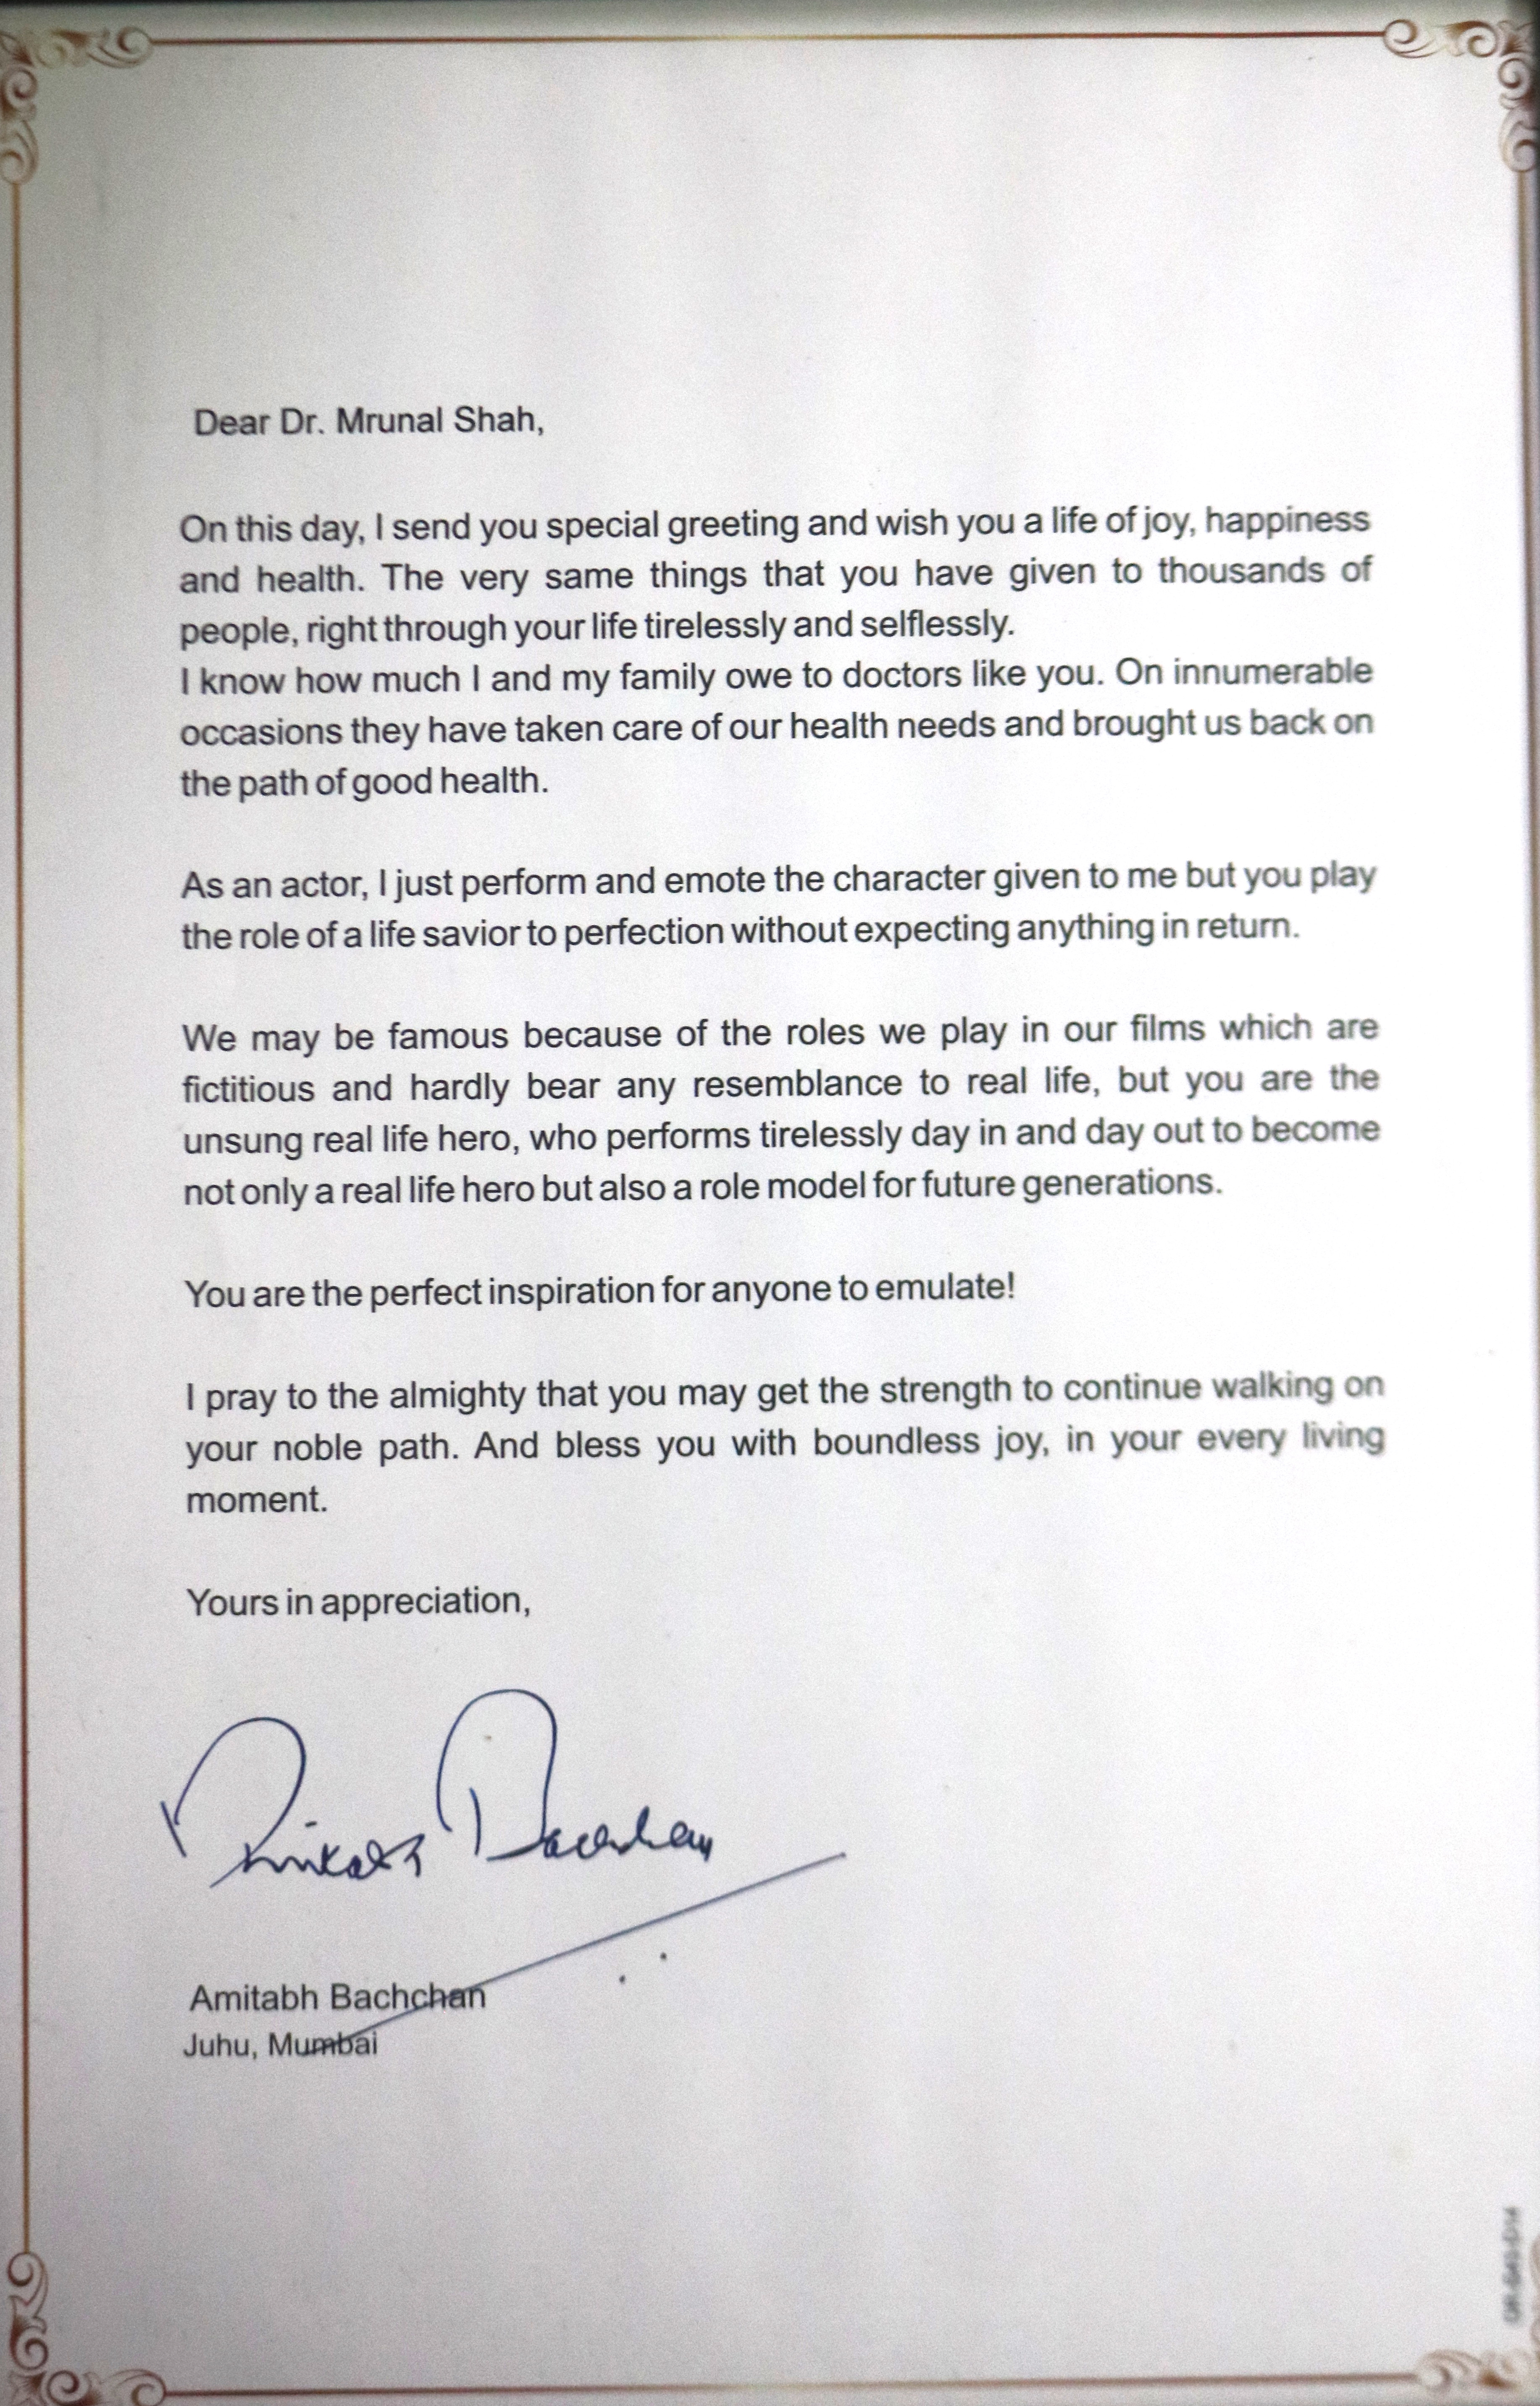 Dear Dr. Mrunal Shah,
On this day, I send you special greeting and wish you a life of joy, happiness
and health. The very same things that you have given to thousands of
people, right through your life tirelessly and selflessly.
I know how much I and my family owe to doctors like you. On innumerable
occasions they have taken care of our health needs and brought us back on
the path of good health.
As an actor, I just perform and emote the character given to me but you play
the role of a life savior to perfection without expecting anything in return.
We may be famous because of the roles we play in our films which are
fictitious and hardly bear any resemblance to real life, but you are the
unsung real life hero, who performs tirelessly day in and day out to become
not only a real life hero but also a role model for future generations.
You are the perfect inspiration for anyone to emulate!
I pray to the almighty that you may get the strength to continue walking on
your noble path. And bless you with boundless joy, in your every living
moment.
Yours in appreciation,
Amitabh Bachchan
Juhu, Mumbai